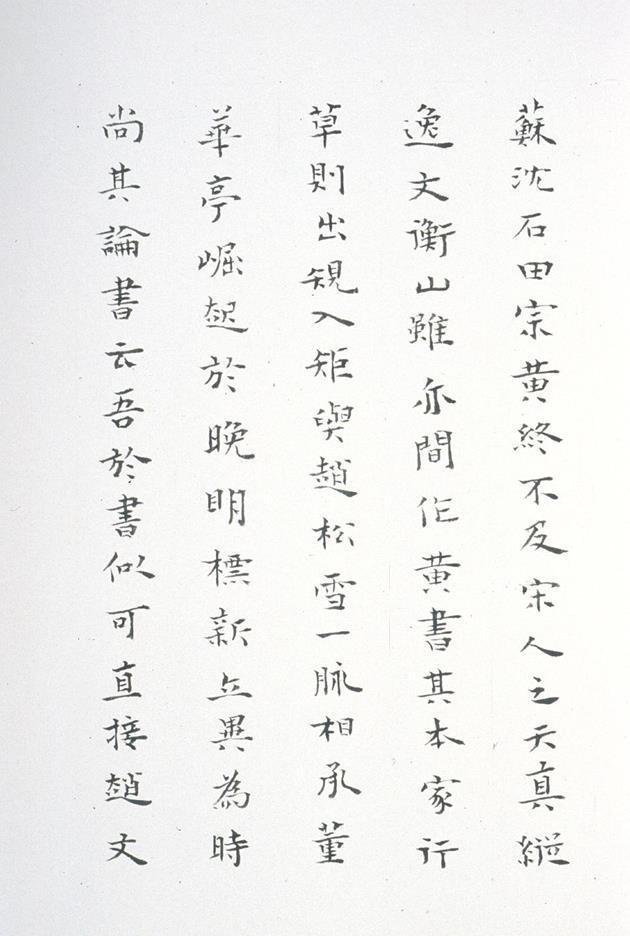 蘇沈石田宗黄終不及宋人之天真縱
逸文衡山雖亦間作黄書其本家行
草則出規入矩與趙松雪一脉相承董
華亭崛起於晚明標新立異為時
尚其論書云吾於書似可直接趙文